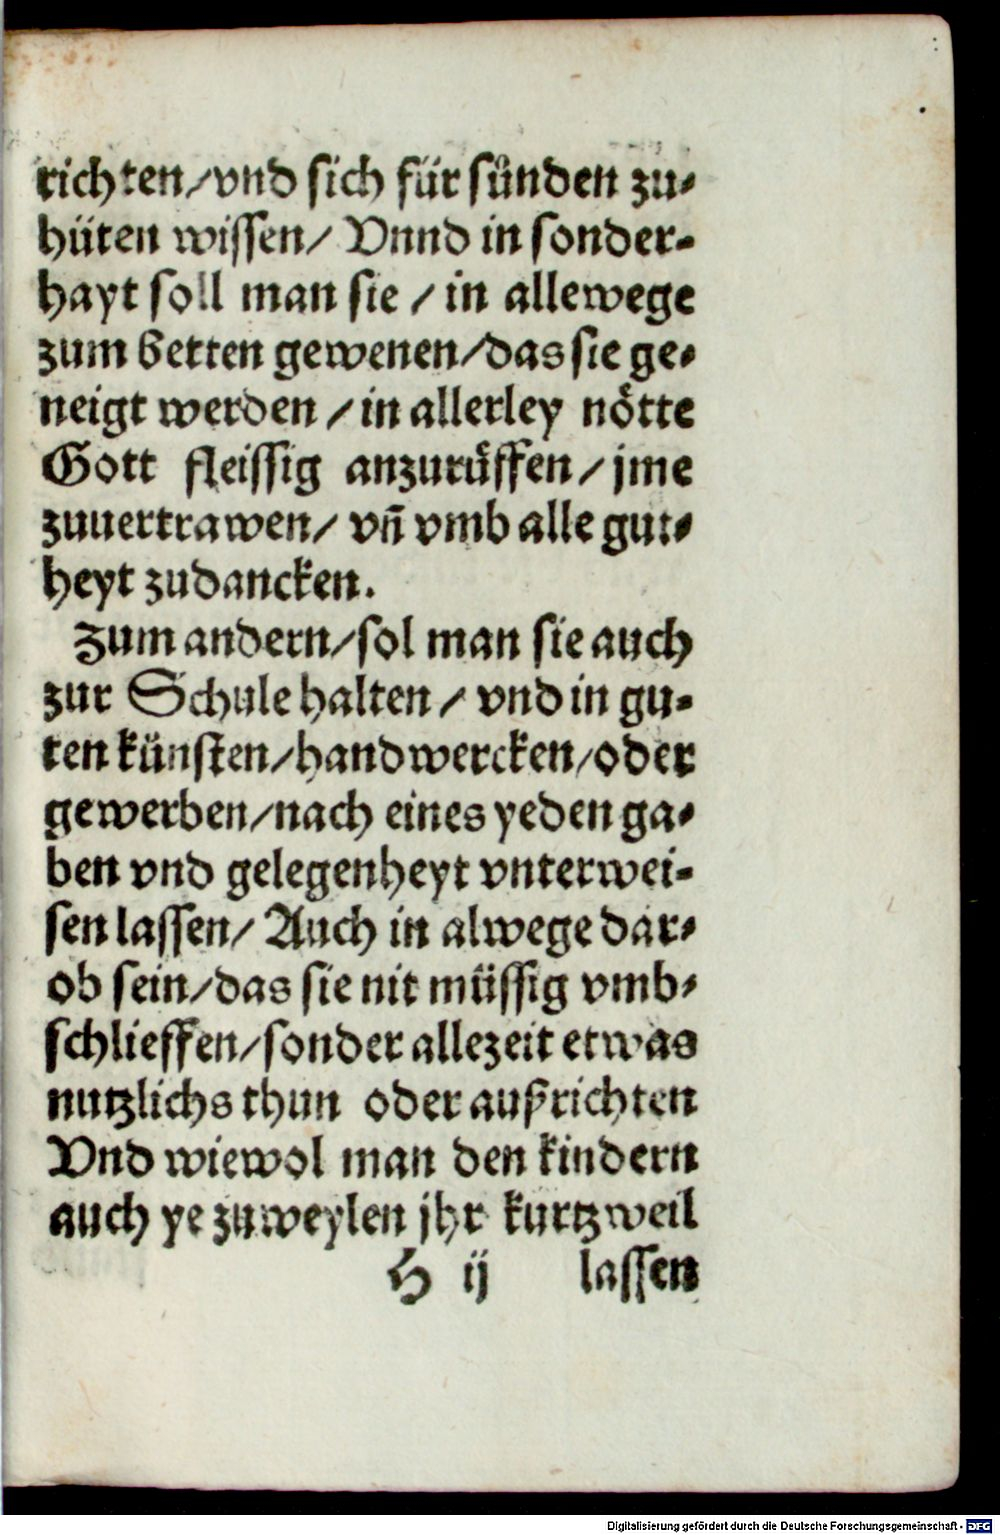 richten/vnd sich für sünden zu-
hüten wissen/ Vnnd in sonder-
hayt soll man sie / in allewege
zum betten gewenen/das sie ge-
neigt werden / in allerley nötte
Gott fleissig anzurüffen/ jme
zuuertrawen/ vn̄ vmb alle gut-
heyt zudancken.
Zum andern/sol man sie auch
zur Schule halten / vnd in gu-
ten künsten/handwercken/oder
gewerben/nach eines yeden ga-
ben vnd gelegenheyt vnterwei-
sen lassen/ Auch in alwege dar-
ob sein/das sie nit müssig vmb-
schlieffen/sonder allezeit etwas
nutzlichs thun oder außrichten
Vnd wiewol man den kindern
auch ye zuweylen jhr kurtzweil
H ij lassen
Digitalisierung gefördert durch die Deutsche Forschungsgemeinschaft - DFG